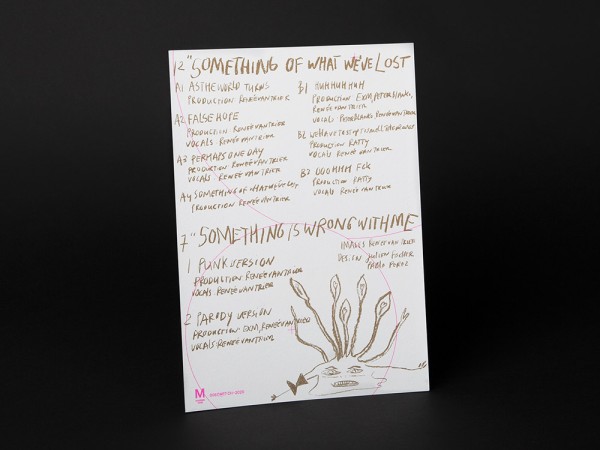 12" SOMETHING OF WHAT WE'VE LOST
A1 AS THE WORLD TURNS
PRODUCTION RENÉE VAN TRIER
A2 FALSE HOPE
PRODUCTION RENÉE VAN TRIER
VOCALS RENÉE VAN TRIER
A3 PERHAPS ONE DAY
PRODUCTION: RENÉE VAN TRIER
VOCALS RENÉE VAN TRIER
A4 SOMETHING OF WHAT WE'VE LOST
PRODUCTION RENÉE VAN TRIER
B1 HUHHUHHUH
PRODUCTION EXM, PETER
RENÉE VAN TRIER
VOCAL RENÉE VAN TRIER
B2 WE HAVE TO STOP
PRODUCTION RATTY
VOCALS RENÉE VAN TRIER
B3 OOOHHH FCK
PRODUCTION RATTY
VOCALS RENÉE VAN TRIER
7" SOMETHING IS WRONG WITH ME
IMAGES RENÉE VAN TRIER
DESIGN
PABLO
1 PUNK VERSION
PRODUCTION RENÉE VAN TRIER
VOCALS RENÉE VAN TRIER
2 PARODY VERSION
PRODUCTION: EXM, RENÉE VAN TRIER
VOCALS: RENÉE VAN TRIER
M